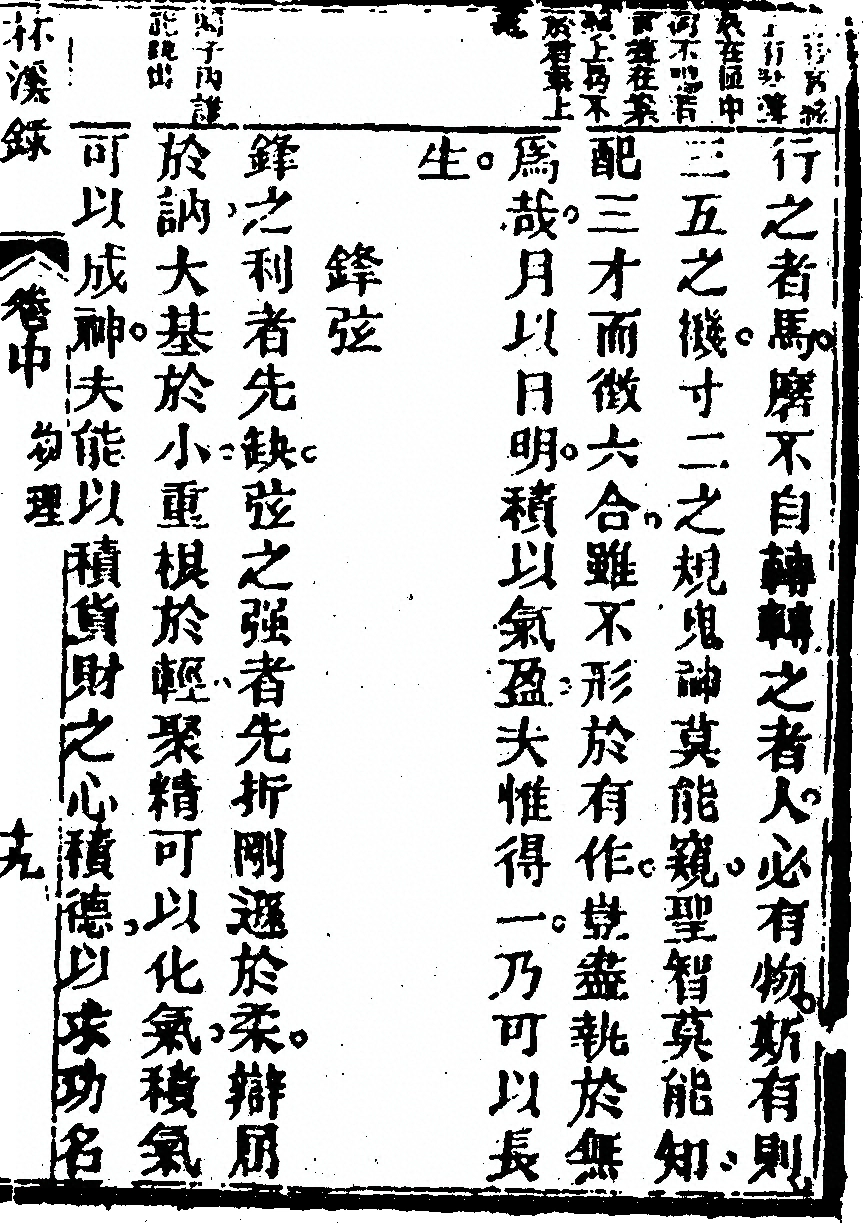 行之者馬磨不自轉轉之者人必有物斯有則
三五之機寸二之規鬼神莫能窺聖智莫能知
配三才而徵六合雖不形於有作豈盡執於無
爲哉月以日明積以氣盈夫惟得一乃可以長
生
鋒弦
鋒之利者先缺弦之强者先折剛遜於柔辯屈
於訥大基於小重根於輕聚精可以化氣積氣
可以成神夫能以積貨財之心積德以求功名
在區中
於君輩上
子內誰
能跳出
林溪錄
卷中
物理
十九